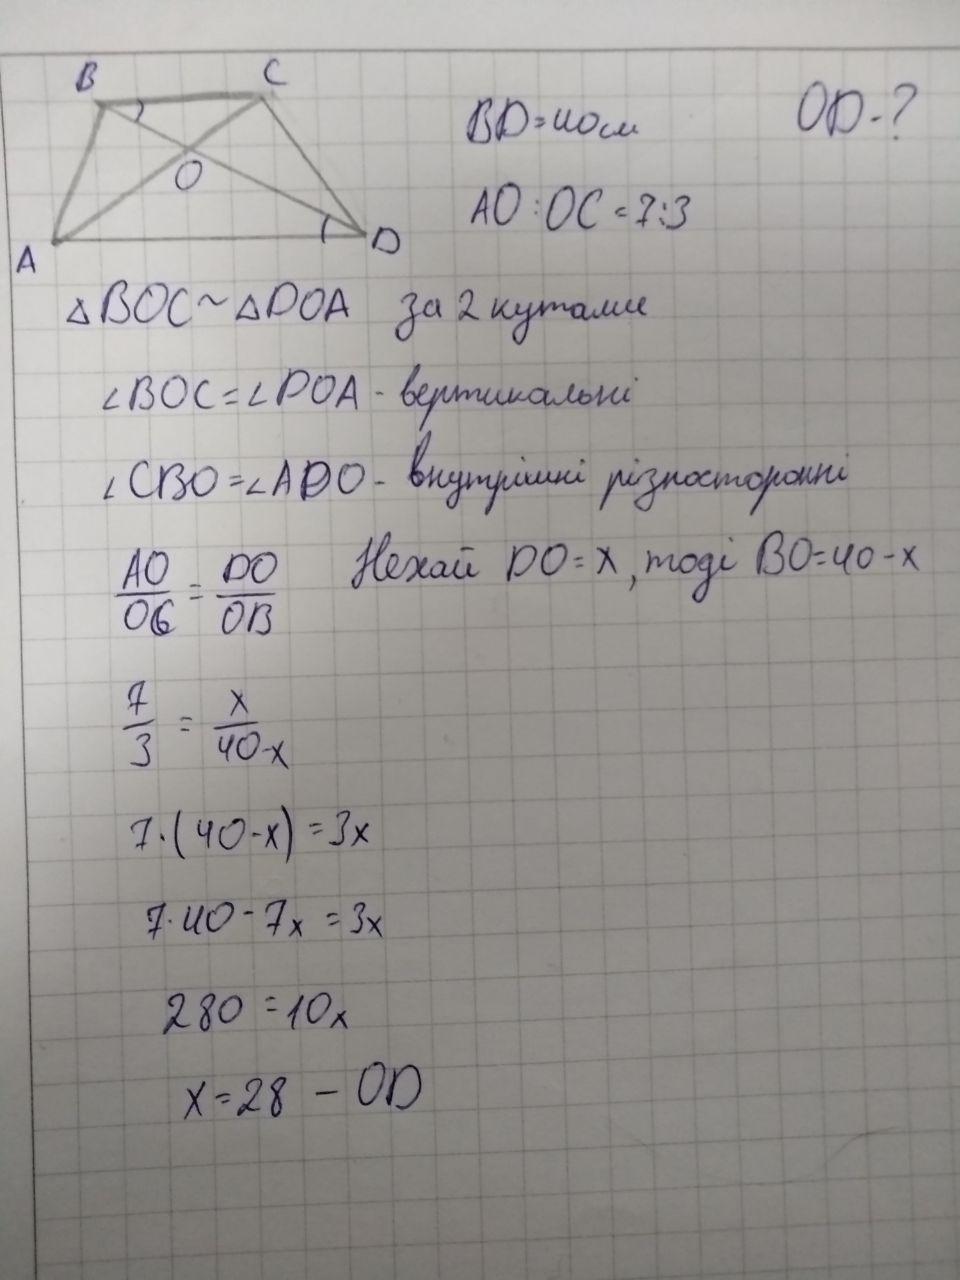 B C
O
A D
BD=40см OD-?
AO:OC=7:3
△BOC~△DOA за 2 кутами
∠BOC=∠DOA - вертикальні
∠CBO=∠ADO - внутрішні різносторонні
AO/OC = DO/OB Нехай DO=x, тоді BO=40-x
7/3 = x/40-x
7·(40-x)=3x
7·40-7x=3x
280=10x
x=28 – OD